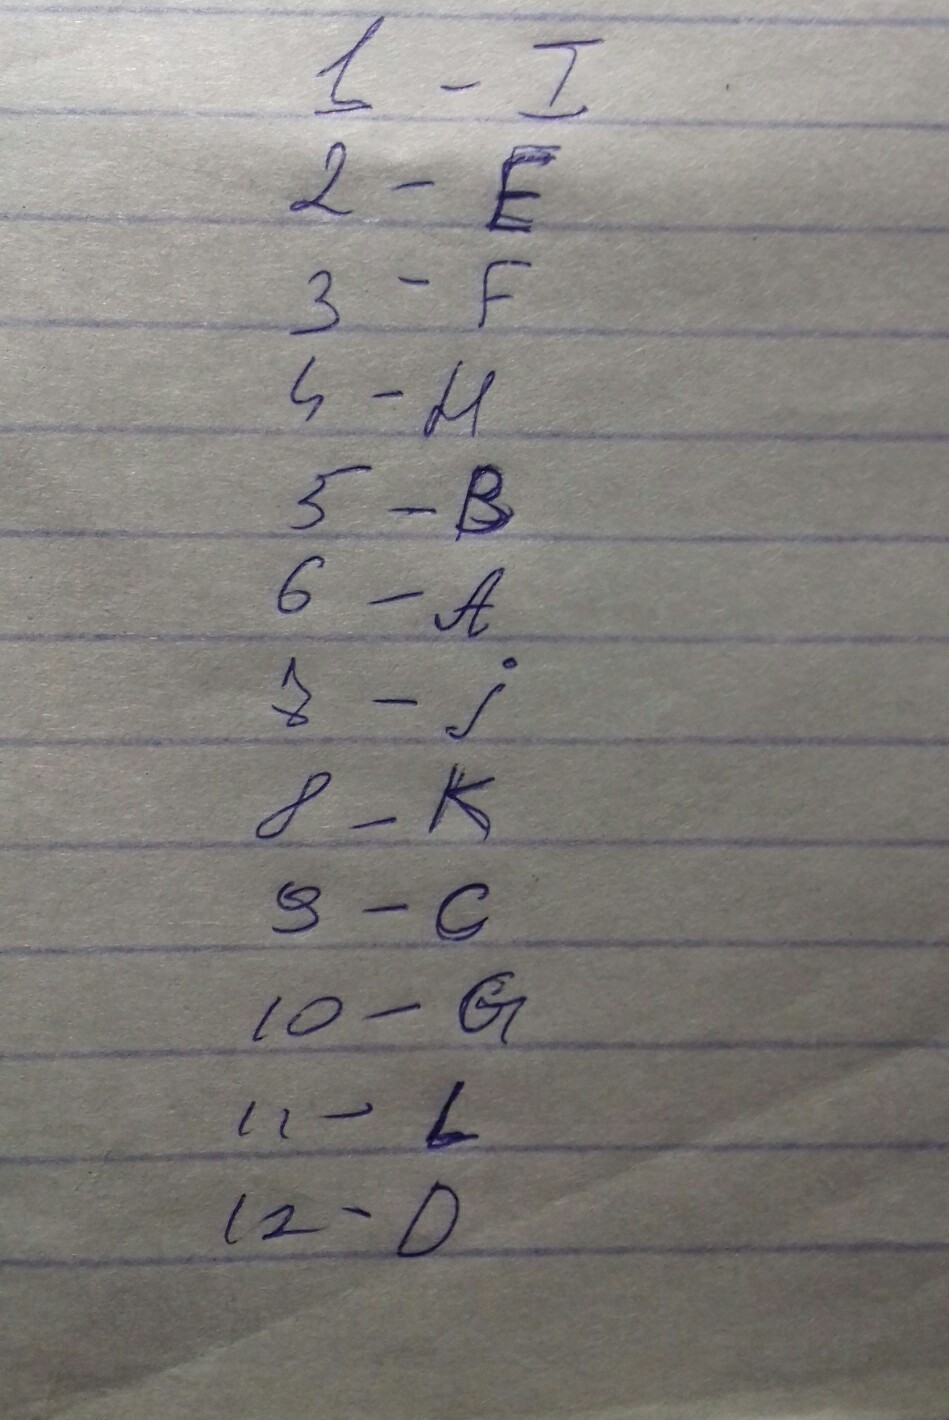 1 - I
2 - E
3 - F
4 - H
5 - B
6 - A
7 - j
8 - K
9 - C
10 - G
11 - L
12 - D